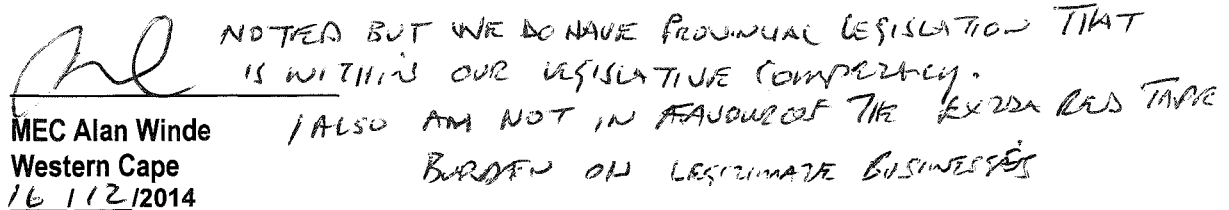 NOTED BUT WE DO HAVE PROVINCIAL LEGISLATION THAT
IS WITHIN OUR LEGISLATIVE COMPETENCY.
I ALSO AM NOT IN FAVOUR OF THE EXTRA RED TAPE
BURDEN ON LEGITIMATE BUSINESSES
MEC Alan Winde
Western Cape
16 / 12 /2014